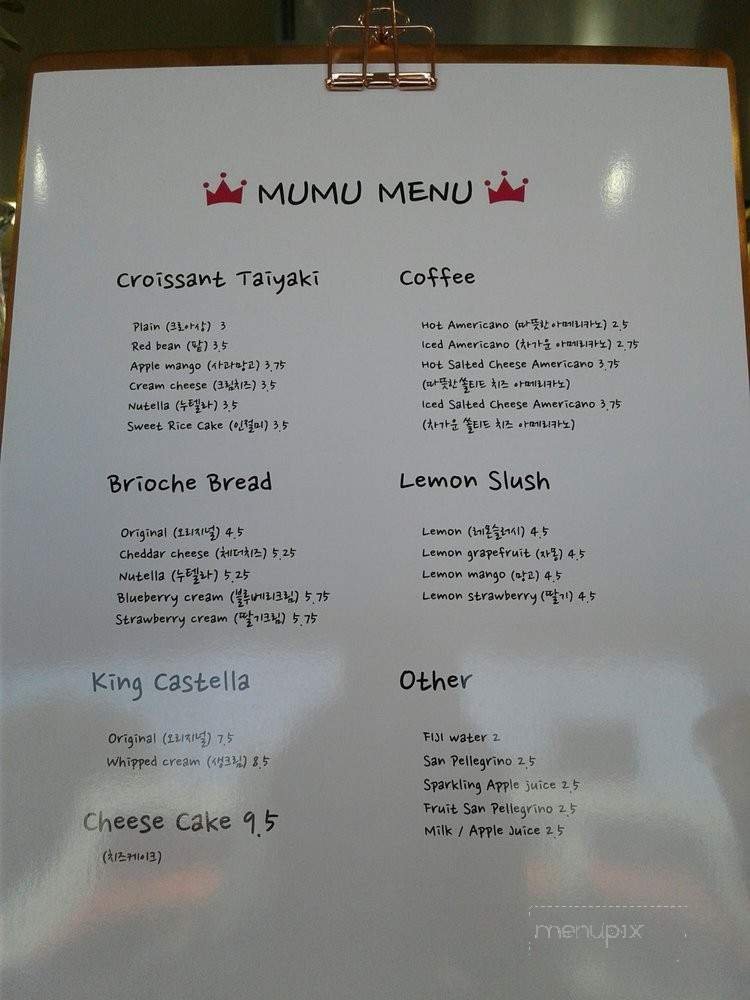 MUMU MENU
Croissant Taiyaki
Plain (크로아상) 3
Red bean (팥) 3.5
Apple mango (사과망고) 3.75
Cream cheese (크림치즈) 3.5
Nutella (누텔라) 3.5
Sweet Rice Cake (인절미) 3.5
Brioche Bread
Original (오리지널) 4.5
Cheddar cheese (체더치즈) 5.25
Nutella (누텔라) 5.25
Blueberry cream (블루베리크림) 5.75
Strawberry cream (딸기크림) 5.75
King Castella
Original (오리지널) 7.5
Whipped cream (생크림) 8.5
Cheese Cake 9.5
(치즈케이크)
Coffee
Hot Americano (따뜻한 아메리카노) 2.5
Iced Americano (차가운 아메리카노) 2.75
Hot Salted Cheese Americano 3.75
(따뜻한 쏠티드 치즈 아메리카노)
Iced Salted Cheese Americano 3.75
(차가운 쏠티드 치즈 아메리카노)
Lemon Slush
Lemon (레몬슬러시) 4.5
Lemon grapefruit (자몽) 4.5
Lemon mango (망고) 4.5
Lemon strawberry (딸기) 4.5
Other
FIJI water 2
San Pellegrino 2.5
Sparkling Apple juice 2.5
Fruit San Pellegrino 2.5
Milk / Apple Juice 2.5
menupix